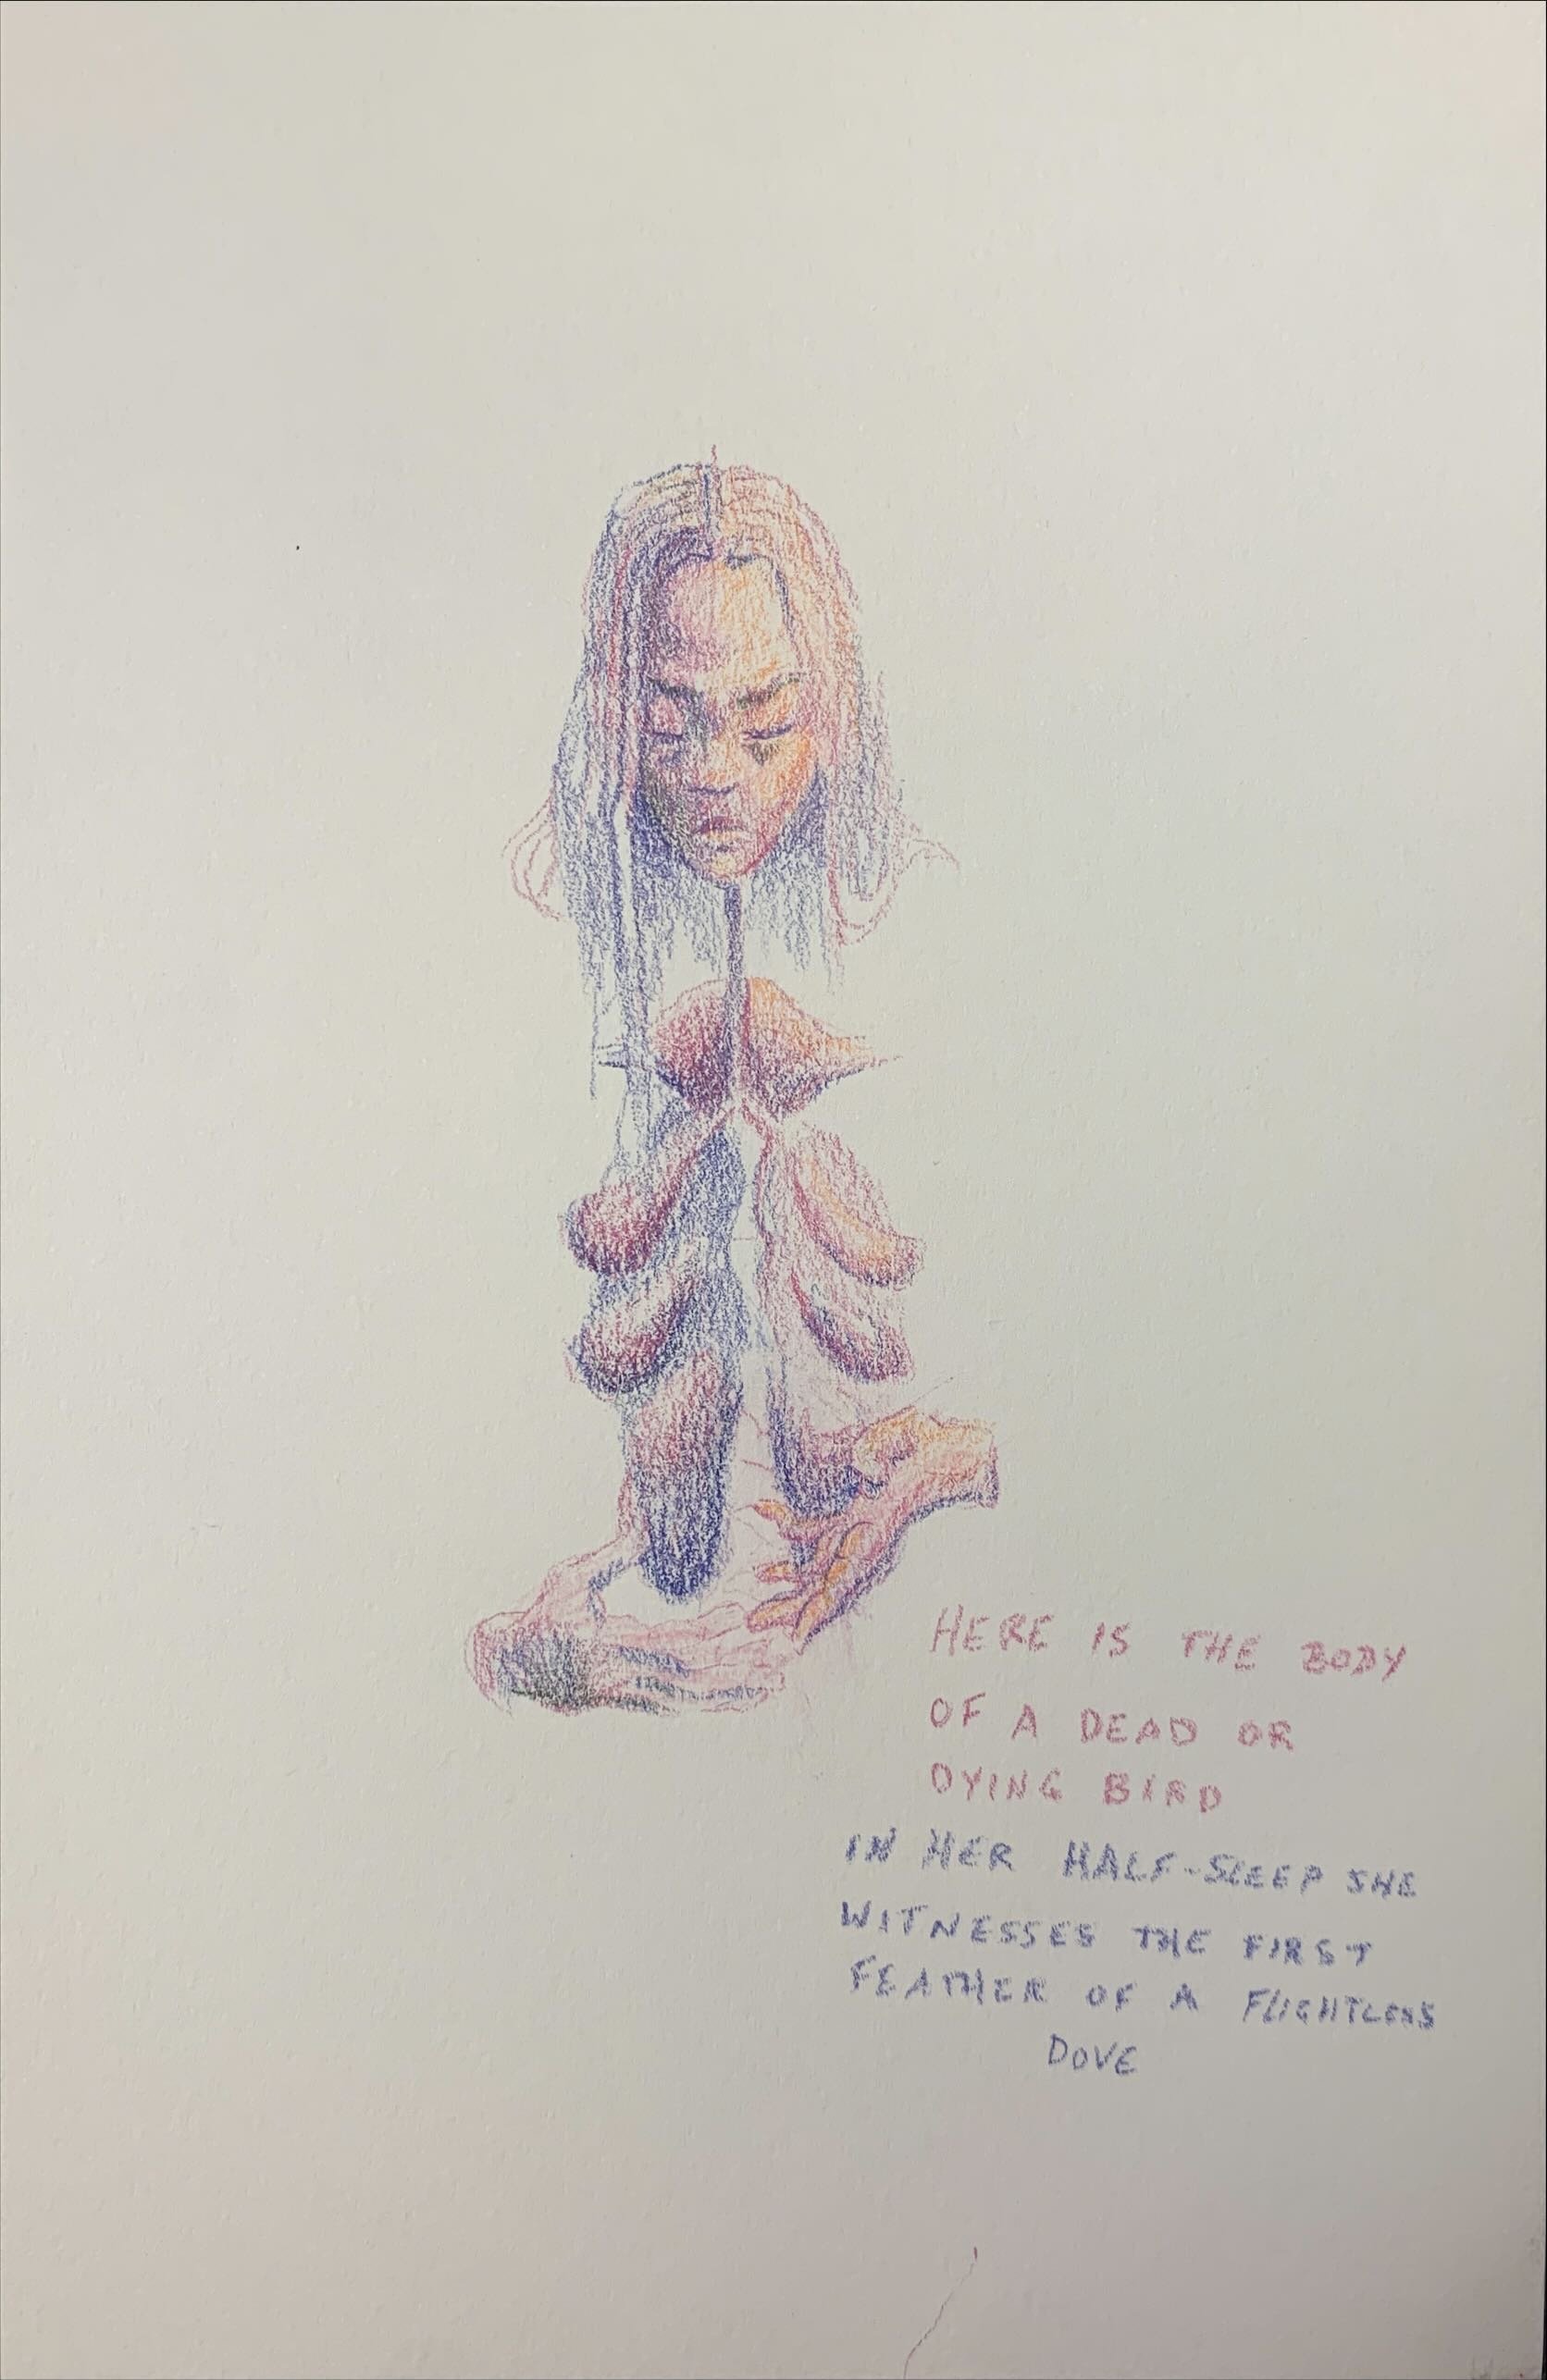 HERE IS THE BODY
OF A DEAD OR
DYING BIRD
IN HER HALF-SLEEP SHE
WITNESSES THE FIRST
FEATHER OF A FLIGHTLESS
DOVE